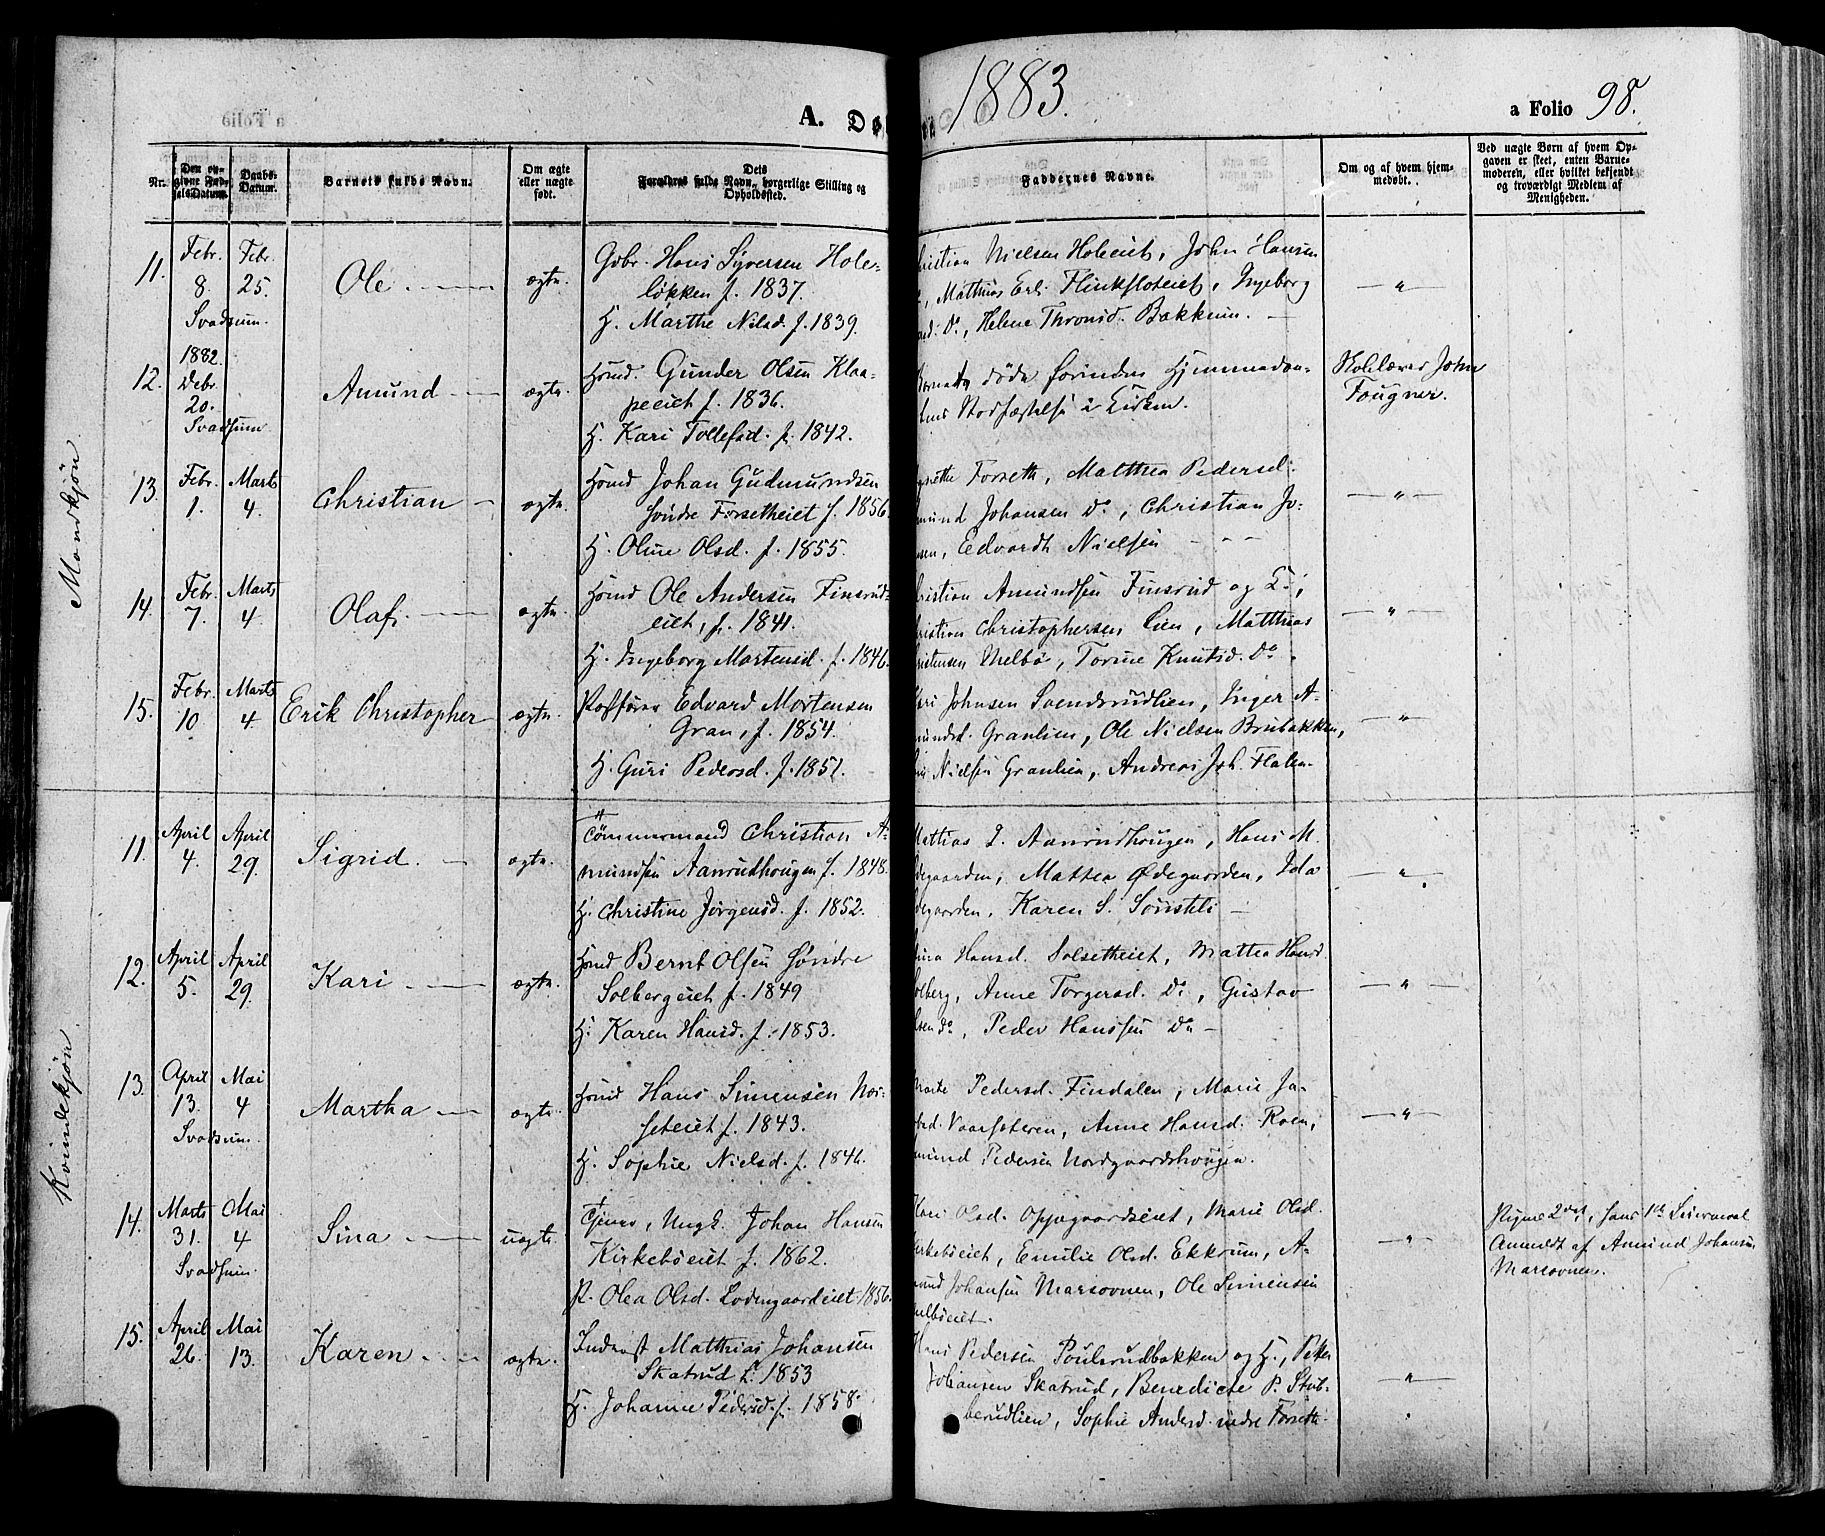 A. Dø
1883.
a Folio 98.
Nr.
Den op-
givne Fød-
selsDatum.
Daabs-
Datum.
Barnets fulde Navn.
Om ægte
eller uægte
født.
Dets
Forældres fulde Navn, borgerlige Stilling og
Opholdssted.
Faddernes Navne.
Om og af hvem hjem-
medøbt.
Ved uægte Børn af hvem Op-
gaven er skeet, enten Barne-
moderen, eller hvilket bekjendt
og troværdigt Medlem af
Menigheden.
Mandkjøn
11. Febr. 8. Svadsum. Febr. 25. Ole ægte.
Gdbr. Hans Syversen Hole-
løkken f. 1837.
H. Marthe Nilsd. f. 1839.
ristian Nielsen Holeeiet, John Hansen
Matthias Erl. Flinkfloteiet, Ingeborg
Do, Helene Thronsd. Bakkum.
"
12. 1882. Debr. 20. Svadsum Amund ægte.
Hsmd. Gunder Olsen Klaa-
peeiet f. 1836.
H. Kari Tollefsd. f. 1842.
døde forinden Hjemmedaa-
bens Stadfæstelse i Kirken.
Skolelærer John
Fougner.
13. Febr. 1. Marts 4. Christian ægte.
Hsmd Johan Gudmundsen
søndre Forsetheiet f. 1856.
H. Oline Olsd. f. 1855.
Forseth, Matthea Pedersd.
mund Johansen Do, Christian Jo-
sen, Edvardt Nielsen
"
14. Febr. 7. Marts 4. Olaf. ægte.
Hsmd Ole Andersen Finsrud-
eiet, f. 1841.
H. Ingeborg Mortensd. f. 1846.
ristian Amundsen Finsrud og K.,
ristian Christophersen Lien, Matthias
ristensen Melbø, Torine Knutsd. Do.
"
15. Febr. 10 Marts 4. Erik Christopher ægte.
Edvard Mortensen
Gran, f. 1854.
H. Guri Pedersd. f. 1851.
ri Johnsen Svendsrudlien, Inger A-
mundsd. Granlien, Ole Nielsen Brubakken,
Nielsen Granlien, Andreas Joh. Flaten
"
Kvindekjøn.
11. April 4. April 29. Sigrid. ægte.
Tømmermand Christian A-
mundsen Aanrudhougen f. 1848.
H. Christine Jørgensd. f. 1852.
Mathias J. Aanrudhougen, Hans M.
degaarden, Mattea Ødegaarden, Ida
degaarden, Karen S. Sønsteli
"
12. April 5. April 29. Kari ægte.
Hsmd Bernt Olsen søndre
Solbergeiet f. 1849
H. Karen Hansd. f. 1853.
Hansd. Solsetheiet, Mattea Hansd
olberg, Anne Torgersd. Do, Gustav
lsen Do, Peder Hanssen Do
"
13. April 13. Svadsum. Mai 4 Martha ægte.
Hsmd Hans Simensen Nor-
seteiet f. 1843.
H. Sophie Nielsd. f. 1846.
Marte Pedersd. Findalen, Marie Ja-
Vaarsæteren, Anne Hansd. Roen,
mund Pedersen Nordgaardshougen.
"
14. Marts 31. Svadsum. Mai 4 Sina uægte.
Tjener, Ungk. Johan Hansen
Kirkebøeiet f. 1862.
P. Olea Olsd. Lodengaardeiet 1856.
Kari Olsd. Opjegaardseiet, Marie Olsd.
irkebøeiet, Emilie Olsd. Ekkrum, A-
mund Johansen Marsovnen, Ole Simensen
elbøeiet.
"
Pigens 2det, hans 1ste Leiermaal
Anmeldt af Amund Johansen
Marsovnen.
15. April 26. Mai 13. Karen ægte.
Inderst Matthias Johansen
Skatrud f. 1853
H. Johanne Pedersd. f. 1858.
Hans Pedersen Poulsrudbakken og H., Peter
Johansen Skatrud, Benedicte P. Stub-
berudlien, Sophie Andersd. nedre Forseth.
"